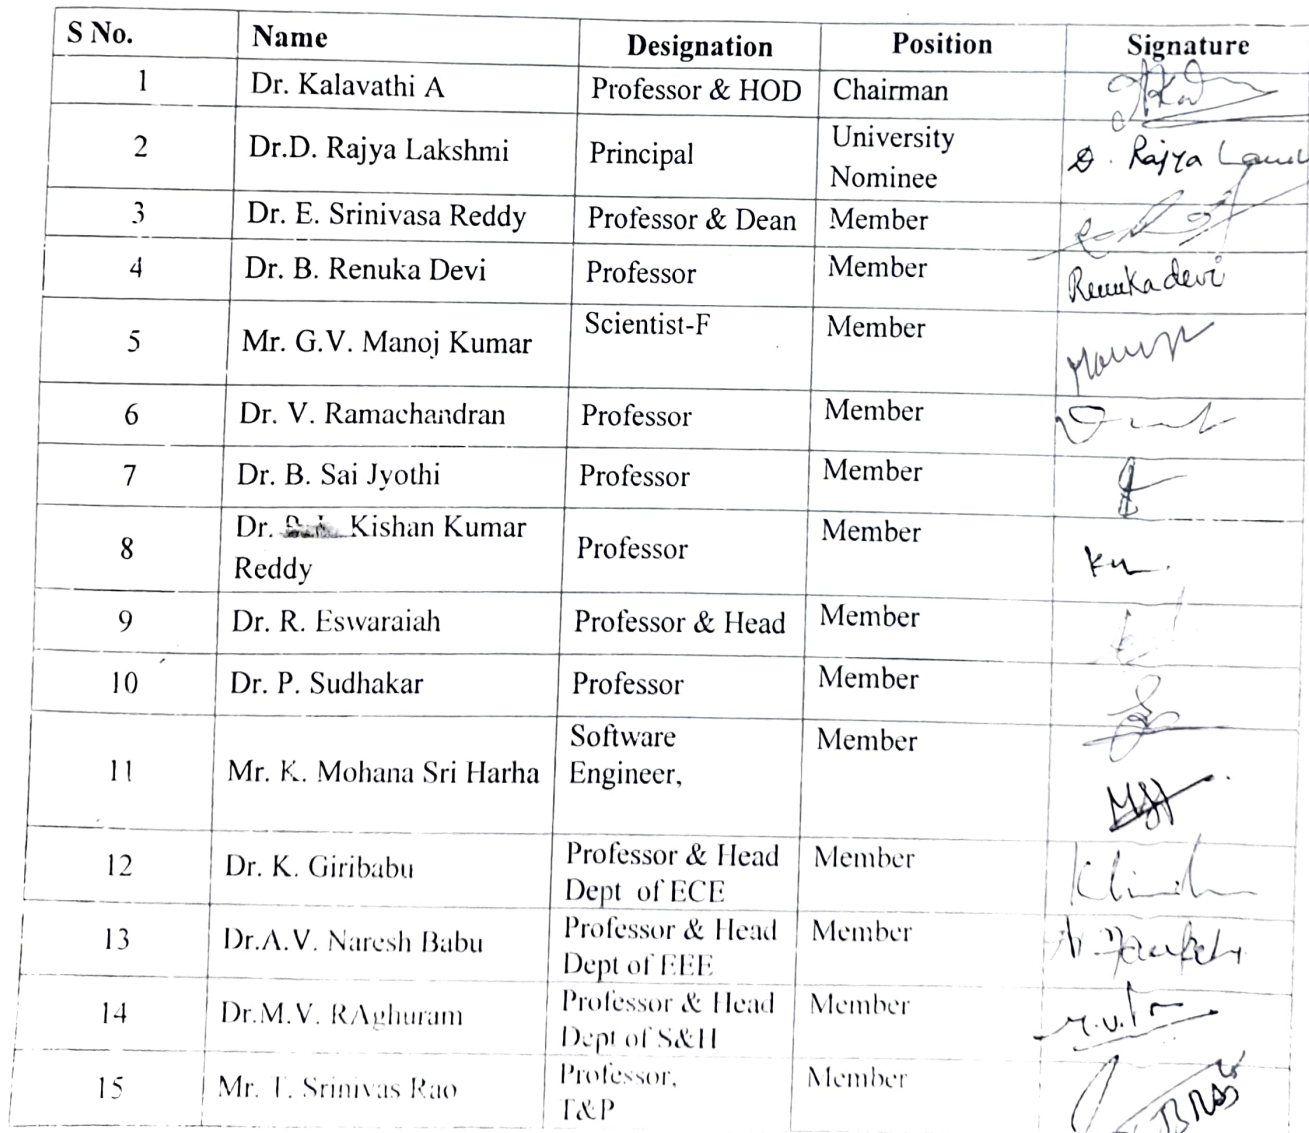 S No. Name Designation Position Signature
1 Dr. Kalavathi A Professor & HOD Chairman
2 Dr.D. Rajya Lakshmi Principal University
Nominee D. Rajya
3 Dr. E. Srinivasa Reddy Professor & Dean Member
4 Dr. B. Renuka Devi Professor Member Renuka devi
5 Mr. G.V. Manoj Kumar Scientist-F Member
6 Dr. V. Ramachandran Professor Member
7 Dr. B. Sai Jyothi Professor Member
8 Dr. Kishan Kumar
Reddy Professor Member
9 Dr. R. Eswaraiah Professor & Head Member
10 Dr. P. Sudhakar Professor Member
11 Mr. K. Mohana Sri Harha Software
Engineer, Member
12 Dr. K. Giribabu Professor & Head
Dept of ECE Member
13 Dr.A.V. Naresh Babu Professor & Head
Dept of EEE Member
14 Dr.M.V. RAghuram Professor & Head
Dept of S&H Member
15 Mr. T. Srinivas Rao Professor,
T&P Member